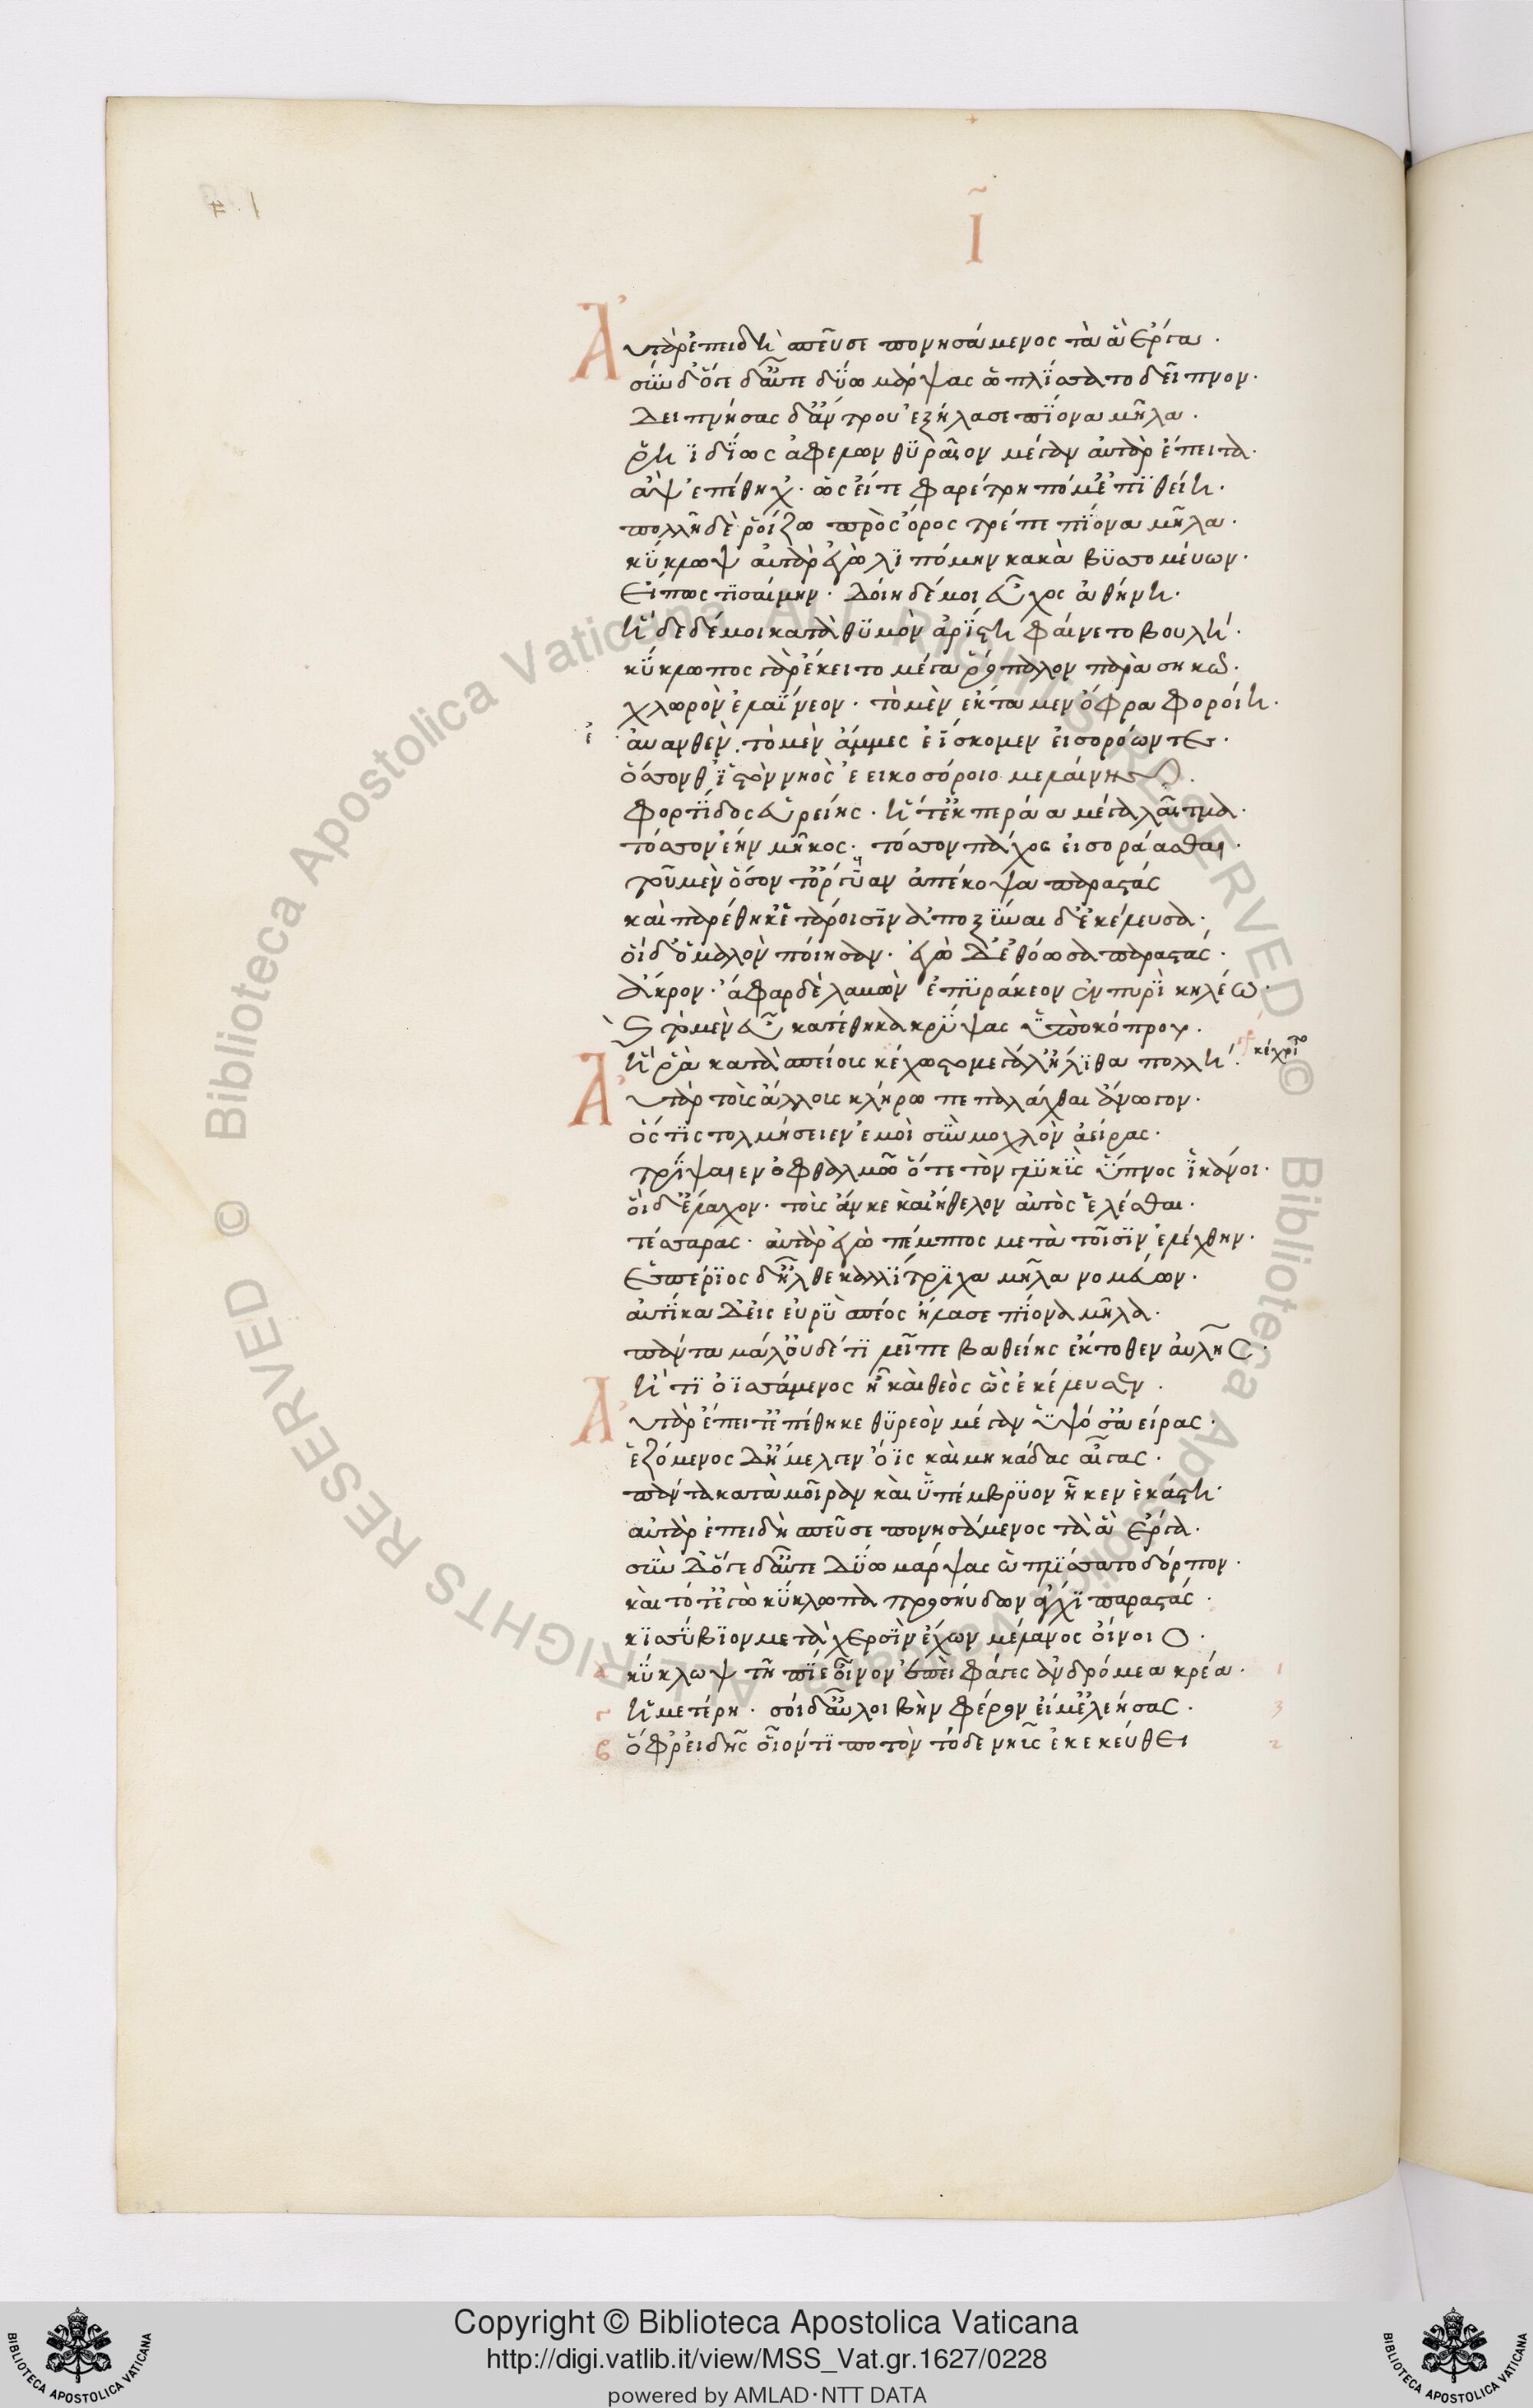 ῑ
Ἀυτὰρ ἐπειδὴ σπεῦσε πονησάμενος τὰ ἃ ἔργα·
σὺν δ' ὅγε δ' αὖτε δύω μάρψας ὁπλίσσατο δεῖπνον·
δειπνήσας δ' ἄντρου ἐξήλασε πίονα μῆλα·
ῥηϊδίως ἀφελὼν θυραῖον μέγαν αὐτὰρ ἔπειτα·
ἂψ ἐπέθηχ'· ὡς εἴτε φαρέτρη πόμ' ἐπιθείη·
πολλῇ δὲ ῥοίζω πρὸς ὄρος τρέπε πίονα μῆλα·
κύκλωψ αὐτὰρ ἐγὼ λιπόμην κακὰ βυσσομεύων·
εἴπως τισαίμην· δοίη δέ μοι εὖχος ἀθήνη·
ἥδε δέ μοι κατὰ θυμὸν ἀρίστη φαίνετο βουλή·
κύκλωπος γὰρ ἔκειτο μέγα ῥόπαλον παρὰ σηκῶ·
χλωρὸν ἐλαΐνεον· τὸ μὲν ἔκταμεν ὄφρα φοροίη·
ἐ
ἀυανθὲν· τὸ μὲν ἄμμες ἐΐσκομεν εἰσορόωντες·
ὅσσον θ' ἱστὸν νηὸς ἐεικοσόροιο μελαίνης·
φορτίδος εὐρείης· ἥτ' ἐκπεράα μέγα λαῖτμα·
τόσσον ἔην μῆκος· τόσσον πάχος εἰσοράασθαι·
τοῦ μὲν ὅσον τ' ὄργυιαν ἀπέκοψα παραστάς
καὶ παρέθηκ' ἑτάροισιν ἀποξῦναι δ' ἐκέλευσα·
οἱ δ' ὁμαλὸν ποίησαν· ἐγὼ δ' ἐθόωσα παραστάς·
ἄκρον· ἄφαρ δὲ λαβὼν ἐπυράκεον ἐν πυρὶ κηλέω·
καὶ τὸ μὲν εὖ κατέθηκα κρύψας ὑπὸ κόπρου·
ἥ ῥα κατὰ σπείους κέχυτο μεγάλ' ἤλιθα πολλή· κέχριτο
Ἀυτὰρ τοὺς ἄλλους κλήρω πεπαλάχθαι ἄνωγον·
ὅς τις τολμήσειεν ἐμοὶ σὺν μοχλὸν ἀείρας·
τρίψαι ἐν ὀφθαλμῶ ὅτε τὸν γλυκὺς ὕπνος ἱκάνοι·
οἱ δ' ἔλαχον· τοὺς ἄν κε καὶ ἤθελον αὐτὸς ἑλέσθαι·
τέσσαρας· αὐτὰρ ἐγὼ πέμπτος μετὰ τοῖσιν ἐλέχθην·
ἑσπέριος δ' ἦλθε καλλίτριχα μῆλα νομεύων·
αὐτίκα δ' εἰς εὐρὺ σπέος ἤλασε πίονα μῆλα·
πάντα μάλ' οὐδέ τι λεῖπε βαθείης ἔκτοθεν αὐλῆς·
ἤ τι ὀϊσσάμενος ἢ καὶ θεὸς ὣς ἐκέλευσεν·
Ἀυτὰρ ἔπειτ' ἐπέθηκε θυρεὸν μέγαν ὑψόσ' ἀείρας·
ἑζόμενος δ' ἤμελγεν ὄϊς καὶ μηκάδας αἶγας·
πάντα κατὰ μοῖραν καὶ ὑπ' ἔμβρυον ἧκεν ἑκάστη·
αὐτὰρ ἐπειδὴ σπεῦσε πονησάμενος τὰ ἃ ἔργα·
σὺν δ' ὅγε δ' αὖτε δύω μάρψας ὡπλίσσατο δόρπον·
καὶ τότ' ἐγὼ κύκλωπα προσηύδων ἄγχι παραστάς·
κισσύβιον μετὰ χερσὶν ἔχων μέλανος οἴνοιο·
α κύκλωψ τῆ πίε οἶνον ἐπεὶ φάγες ἀνδρόμεα κρέα· 1
γ ἡμετέρη· σοὶ δ' αὖ λοιβὴν φέρον εἴ μ' ἐλεήσας· 3
β ὄφρ' εἰδῇς οἷόν τι ποτὸν τόδε νηῦς ἐκεκεύθει 2
Copyright © Biblioteca Apostolica Vaticana
http://digi.vatlib.it/view/MSS_Vat.gr.1627/0228
powered by AMLAD·NTT DATA